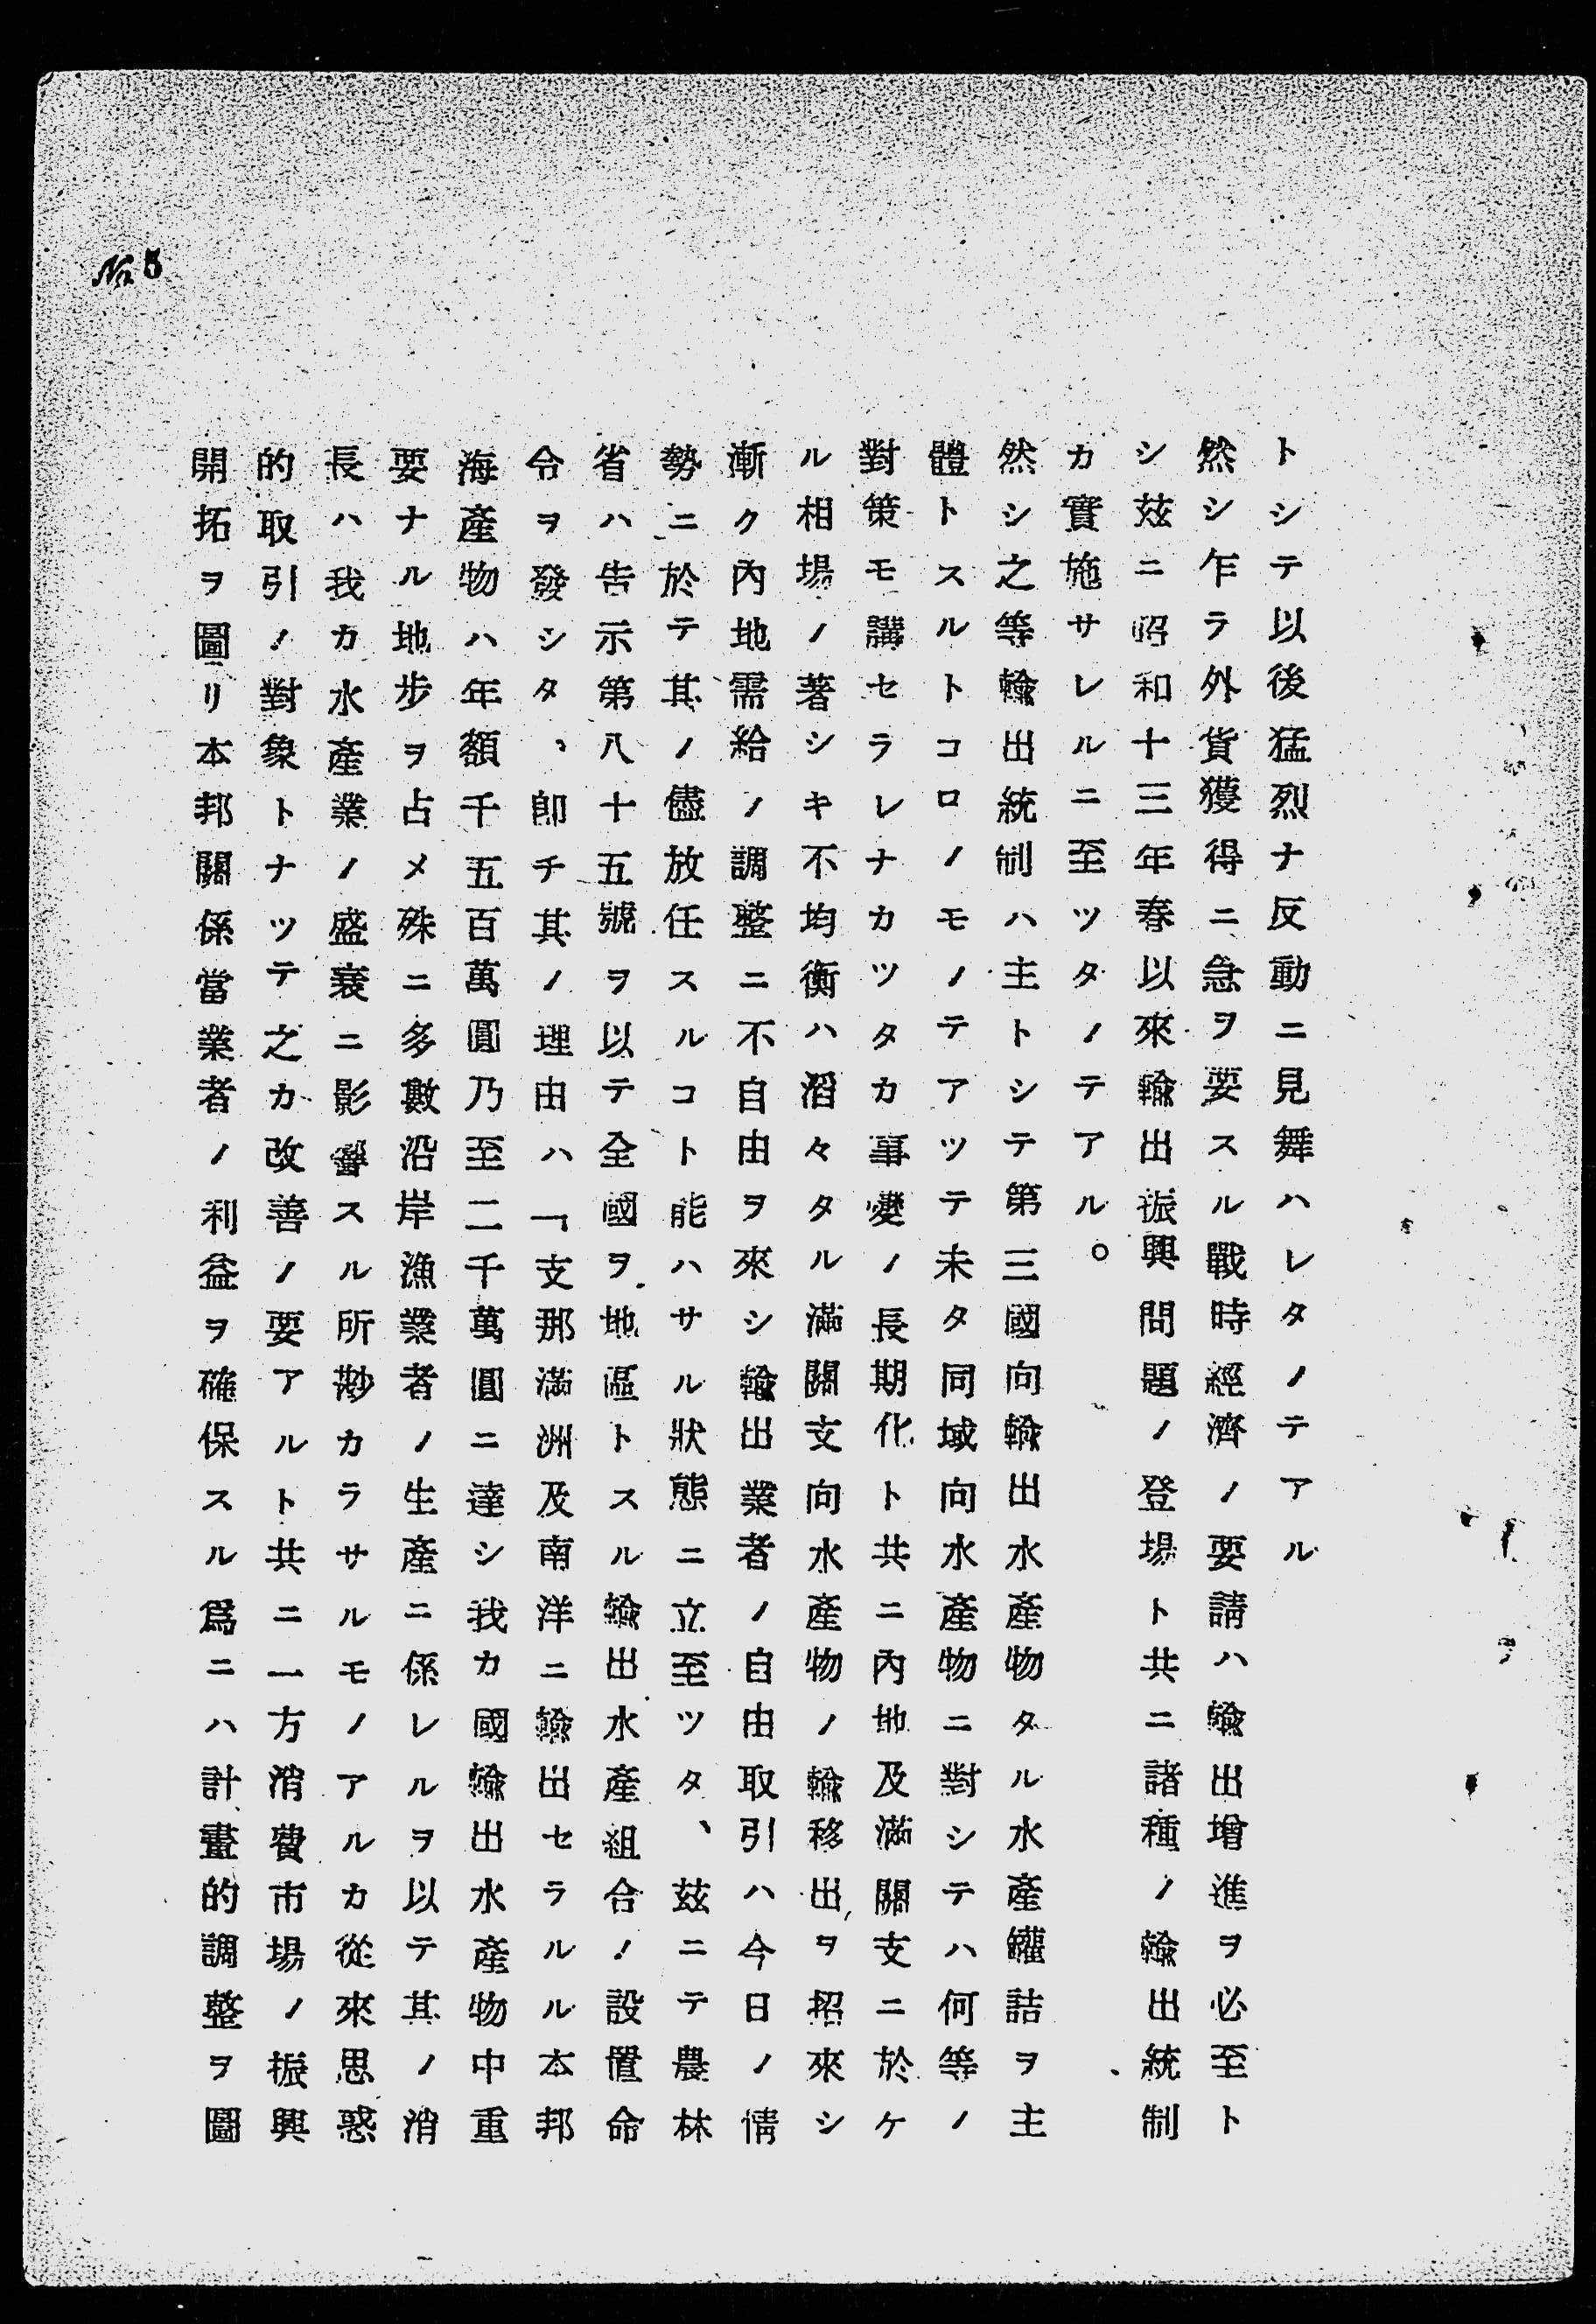 № 5
トシテ以後猛烈ナ反動ニ見舞ハレタノテアル
然シ乍ラ外貨獲得ニ急ヲ要スル戰時經濟ノ要請ハ輸出增進ヲ必至ト
シ玆ニ昭和十三年春以來輸出振興問題ノ登場ト共ニ諸種ノ輸出統制
カ實施サレルニ至ツタノテアル。
然シ之等輸出統制ハ主トシテ第三國向輸出水產物タル水產罐詰ヲ主
體トスルトコロノモノテアツテ未タ同域向水產物ニ對シテハ何等ノ
對策モ講セラレナカツタカ事變ノ長期化ト共ニ內地及滿關支ニ於ケ
ル相場ノ著シキ不均衡ハ滔々タル滿關支向水產物ノ輸移出ヲ招來シ
漸ク內地需給ノ調整ニ不自由ヲ來シ輸出業者ノ自由取引ハ今日ノ情
勢ニ於テ其ノ儘放任スルコト能ハサル狀態ニ立至ツタ、玆ニテ農林
省ハ告示第八十五號ヲ以テ全國ヲ地區トスル輸出水產組合ノ設置命
令ヲ發シタ、卽チ其ノ理由ハ「支那滿洲及南洋ニ輸出セラルル本邦
海產物ハ年額千五百萬圓乃至二千萬圓ニ達シ我カ國輸出水產物中重
要ナル地步ヲ占メ殊ニ多數沿岸漁業者ノ生產ニ係レルヲ以テ其ノ消
長ハ我カ水產業ノ盛衰ニ影響スル所尠カラサルモノアルカ從來思惑
的取引ノ對象トナツテ之カ改善ノ要アルト共ニ一方消費市場ノ振興
開拓ヲ圖リ本邦關係當業者ノ利益ヲ確保スル爲ニハ計畫的調整ヲ圖